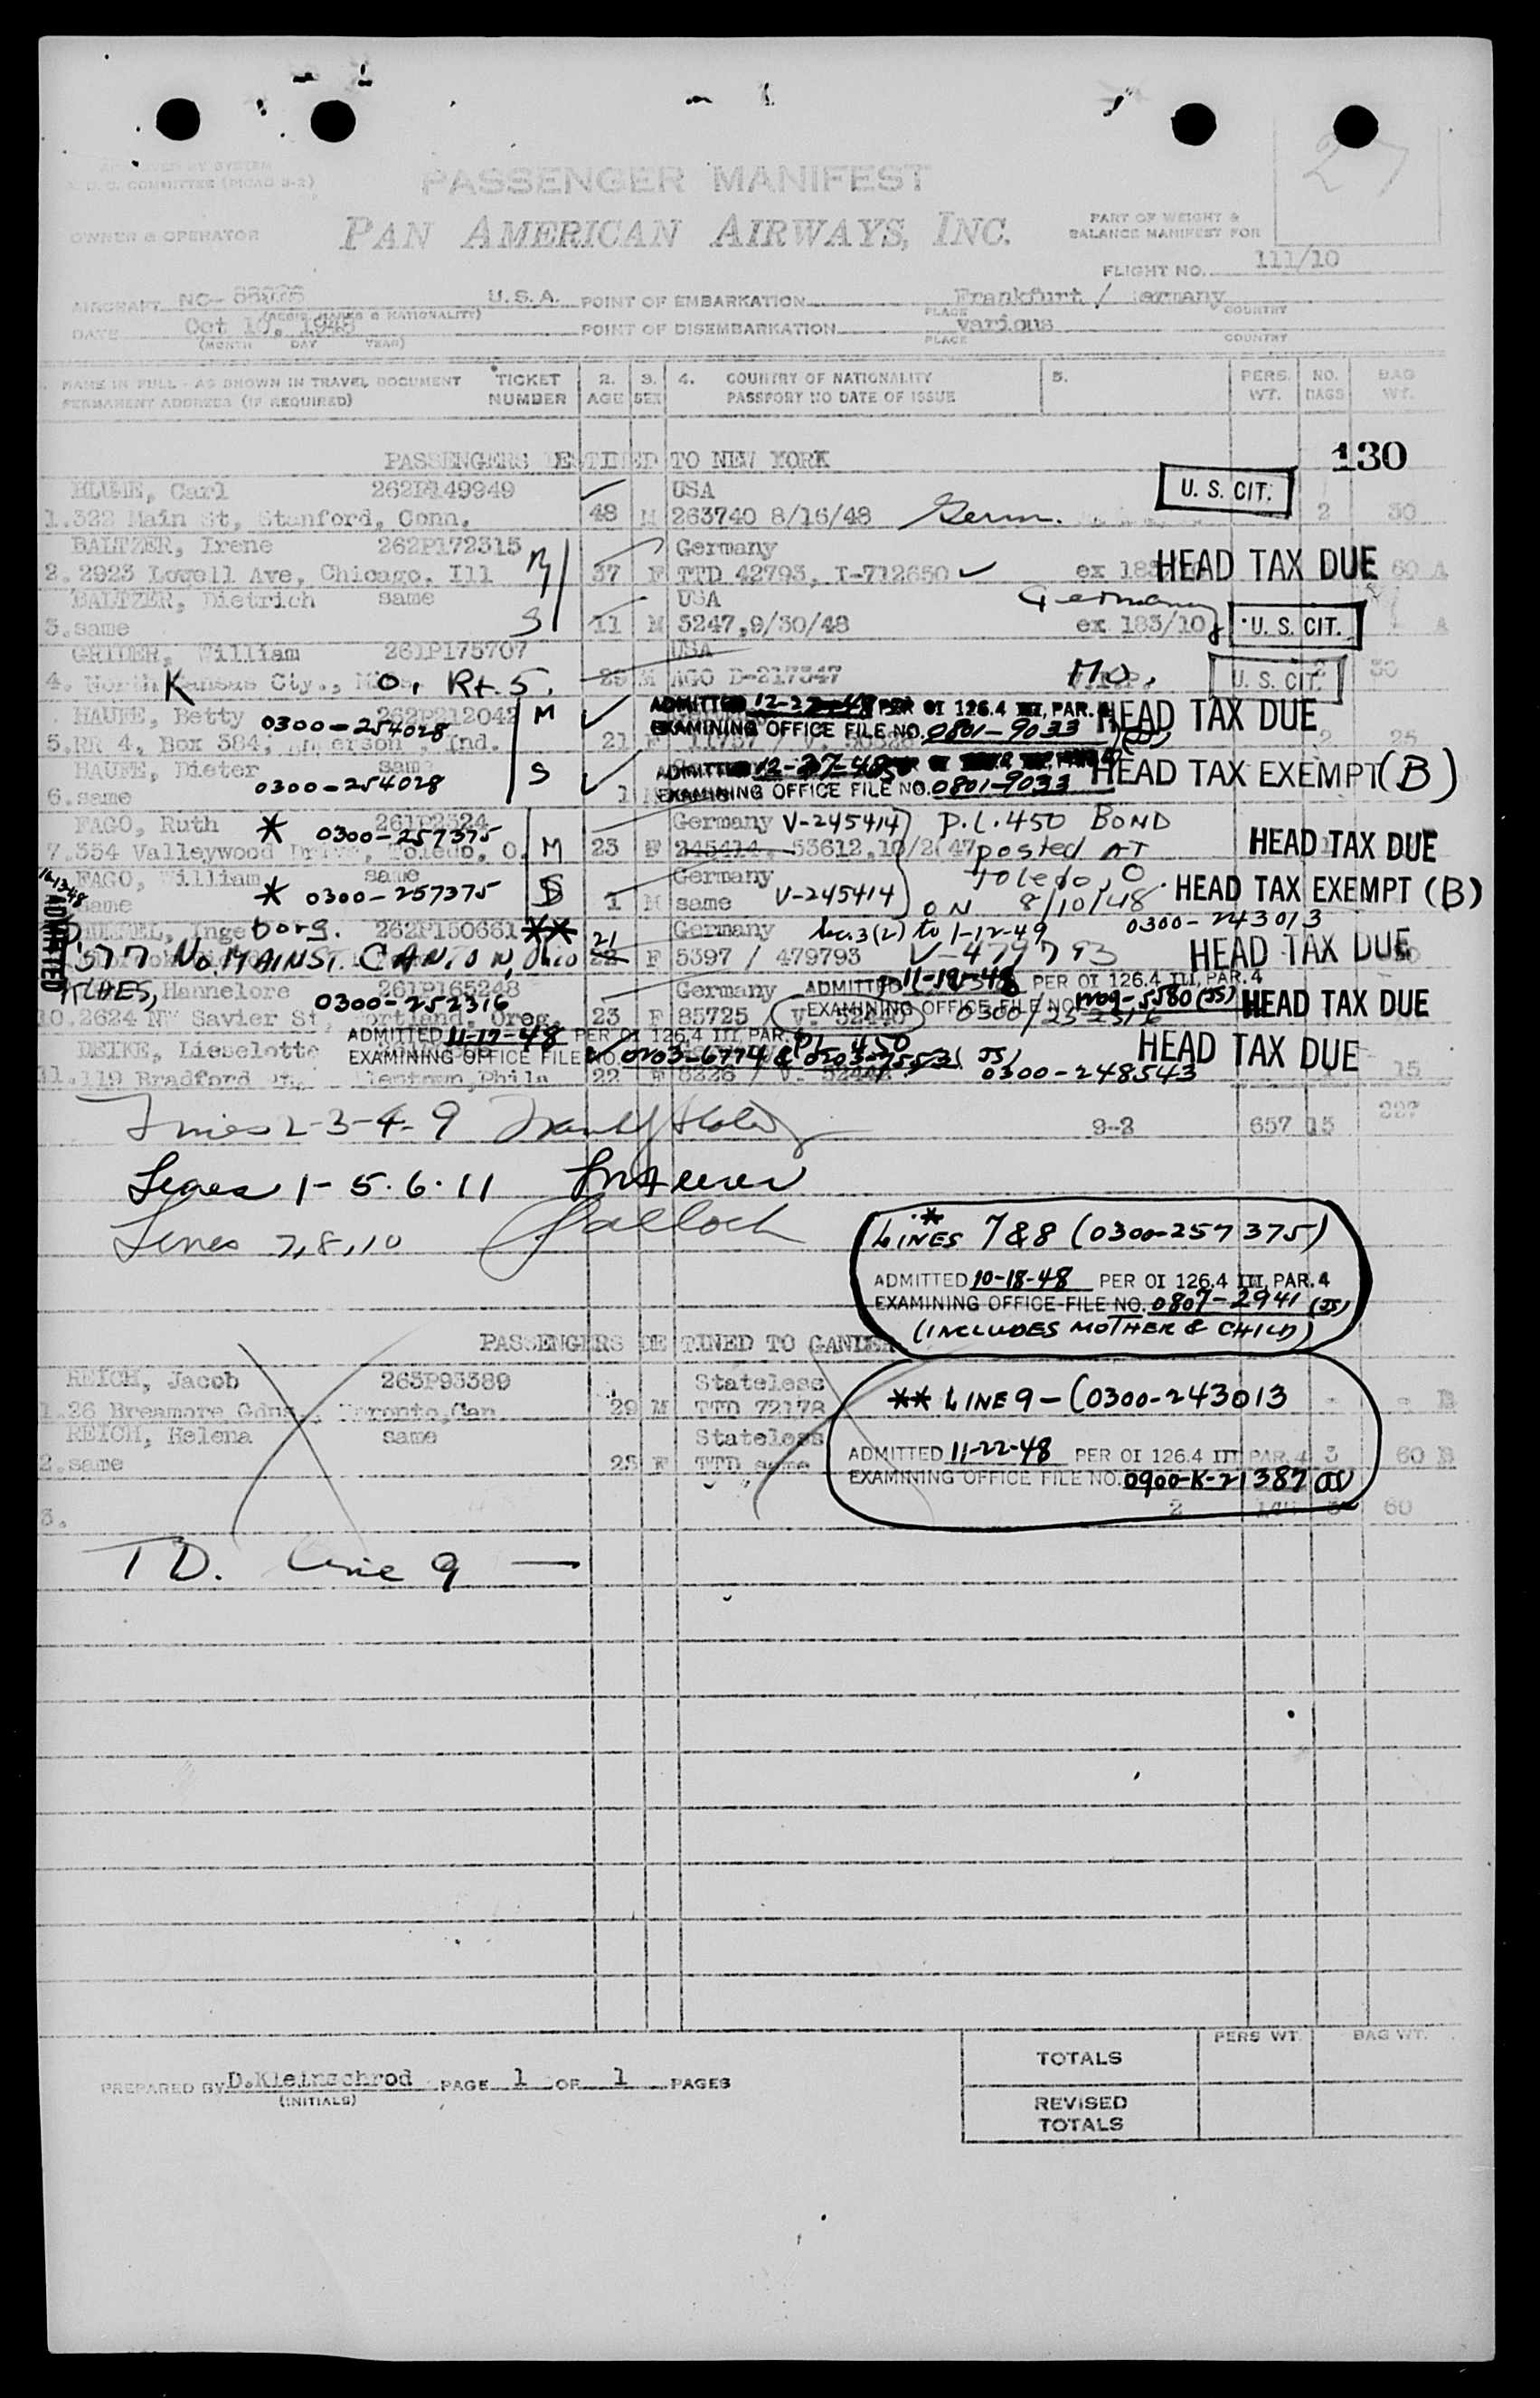 27
PASSENGER MANIFEST
U.S.O. COMMITTEE (PICAO 9-2)
OWNER & OPERATOR PAN AMERICAN AIRWAYS, INC. PART OF WEIGHT &
BALANCE MANIFEST FOR
FLIGHT NO. 111/10
AIRCRAFT NC- U.S.A. POINT OF EMBARKATION Frankfurt / Germany
PLACE COUNTRY
DATE Oct 10, 1948 POINT OF DISEMBARKATION various
(MONTH DAY YEAR) PLACE COUNTRY
NAME IN FULL - AS SHOWN IN TRAVEL DOCUMENT TICKET 2. 3. 4. COUNTRY OF NATIONALITY 5. PERS. NO. BAG
PERMANENT ADDRESS (IF REQUIRED) NUMBER AGE SEX PASSPORT NO DATE OF ISSUE WT. BAGS WT.
PASSENGERS DESTINED TO NEW YORK 130
BLUME, Carl 262P149949 USA U. S. CIT.
1. 322 Main St, Stanford, Conn. 48 M 263740 8/16/48 Germ. 2 30
BALTZER, Irene 262P172315 M Germany HEAD TAX DUE
2. 2923 Lowell Ave, Chicago, Ill 37 F TTD 42793, I-712650 ex 183 60 A
BALTZER, Dietrich same USA Germany
3. same S 11 M 5247, 9/30/48 ex 183/10 U. S. CIT. A
GRIDER, William 261P175707 USA
4. North Kansas Cty., O, Rt. 5. 29 M AGO D-217347 MO. U. S. CIT. 30
HAUFE, Betty 0300-254028 262P212042 M ADMITTED 12-27-48 PER OI 126.4 III, PAR. 4 HEAD TAX DUE
5. RR 4, Box 384, Anderson, Ind. 21 F EXAMINING OFFICE FILE NO. 0801-9033 2 25
HAUFE, Dieter same S ADMITTED 12-27-48 HEAD TAX EXEMPT (B)
6. same 0300-254028 1 EXAMINING OFFICE FILE NO. 0801-9033
FAGO, Ruth * 0300-257375 261P2324 Germany V-245414 P.L. 450 BOND
7. 354 Valleywood Drive, Toledo, O. M 23 F 245414, 53612, 10/2/47 posted AT HEAD TAX DUE
FAGO, William same Germany Toledo, O
same * 0300-257375 S 1 M same V-245414 ON 8/10/48 HEAD TAX EXEMPT (B)
10-13-48 ADMITTED
Ingeborg. 262P150661 ** 21 Germany Sec. 3(2) to 1-12-49 0300-243013
577 No. MAIN ST. CANTON, Ohio 22 F 5397 / 479793 V-479793 HEAD TAX DUE
Hannelore 261P165248 Germany ADMITTED 11-18-48 PER OI 126.4 III, PAR. 4
0300-252316 EXAMINING OFFICE FILE NO. 5580 (JS) HEAD TAX DUE
10. 2624 NW Savier St, Portland, Oreg. 23 F 85725 / 0300/252316
DEIKE, Lieselotte ADMITTED 11-17-48 PER OI 126.4 III, PAR. 4 PL-450
EXAMINING OFFICE FILE NO. 0203-6774 & 0203-7553 (JS) HEAD TAX DUE
11. 119 Bradford 22 F 8226 / 0300-248543 15
Lines 2-3-4-9 9-2 657 15 227
Lines 1-5.6.11
Lines 7,8,10
* LINES 7 & 8 (0300-257375)
ADMITTED 10-18-48 PER OI 126.4 III, PAR. 4
EXAMINING OFFICE FILE NO. 0807-2941 (JS)
(INCLUDES MOTHER & CHILD)
PASSENGERS DESTINED TO GANDER
REICH, Jacob 263P93389 Stateless
1. 26 Breamore Gdns., Toronto, Can 29 M TTD 72178 - - B
** LINE 9 - (0300-243013
REICH, Helena same Stateless
2. same 25 F TTD same 3 60 B
ADMITTED 11-22-48 PER OI 126.4 III PAR. 4
EXAMINING OFFICE FILE NO. 0900-K-21387 (JS)
3. 2 60
TD. Line 9 —
PERS WT. BAG WT.
TOTALS
PREPARED BY D.Kleinschrod PAGE 1 OF 1 PAGES
(INITIALS)
REVISED
TOTALS